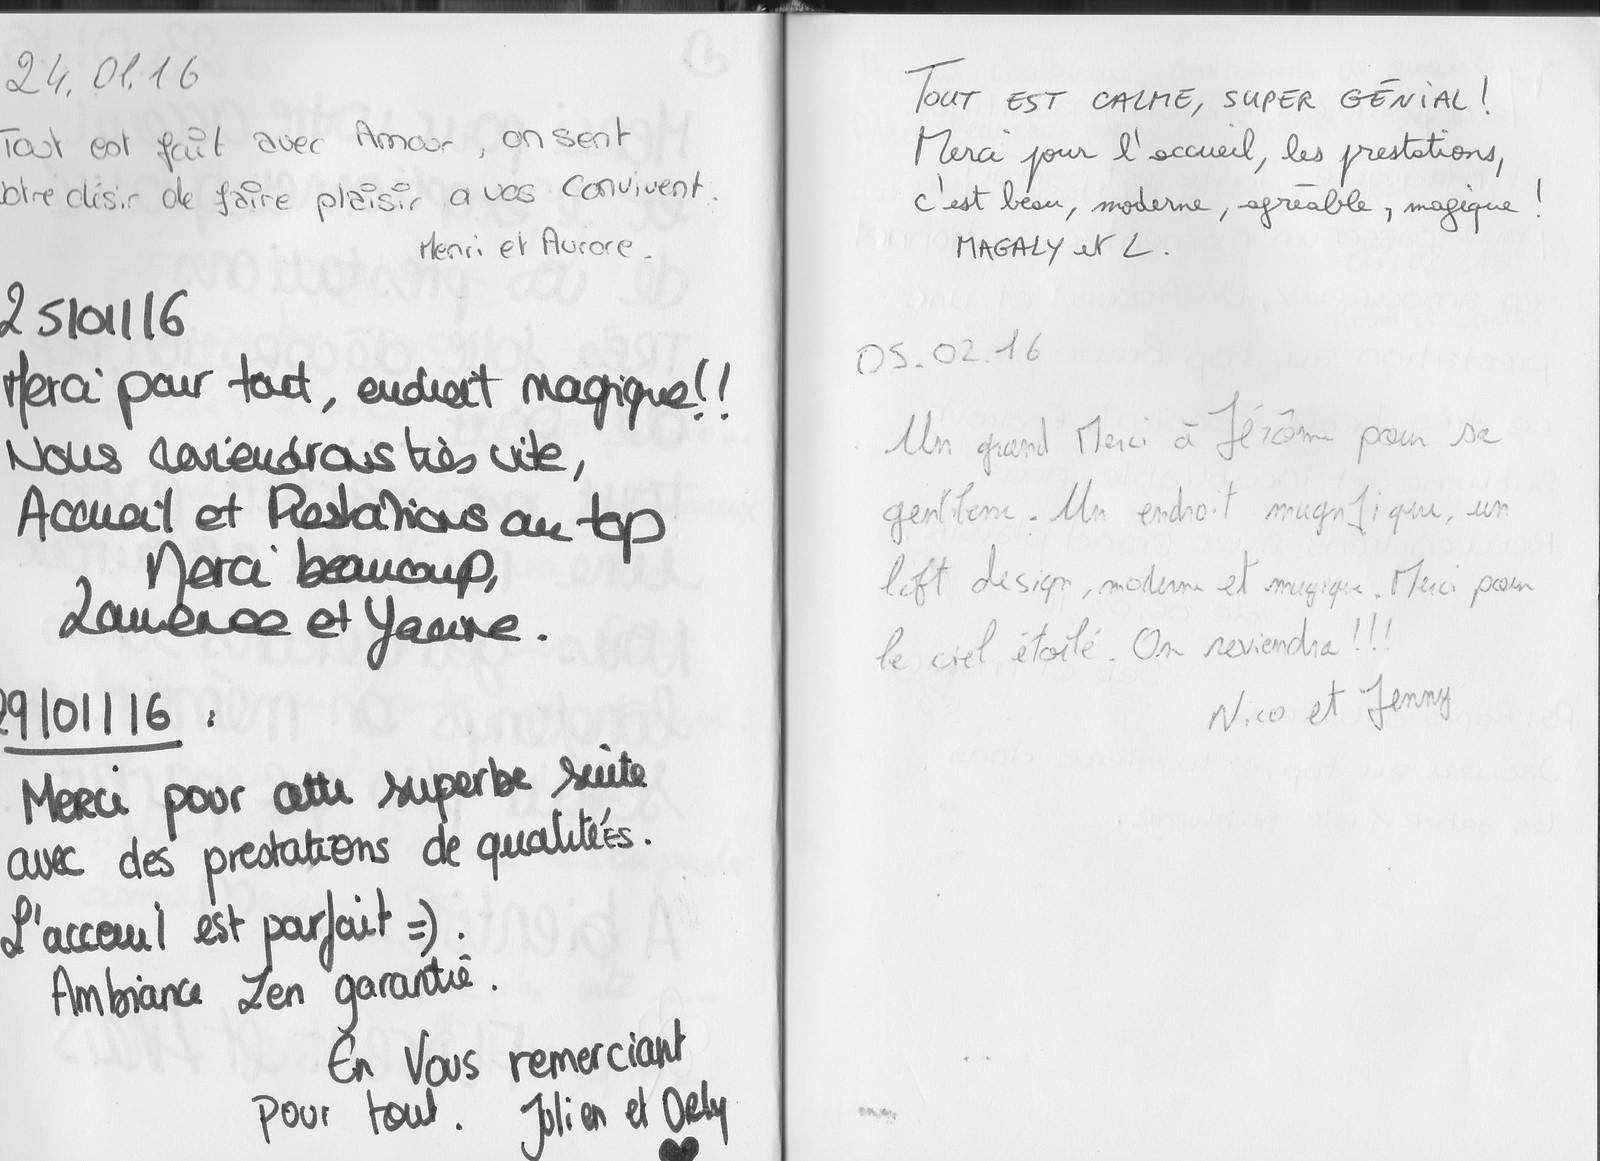 24.01.16
Tout est fait avec Amour, on sent
votre désir de faire plaisir a vos Convivent.
Henri et Aurore.
25/01/16
Merci pour tout, endroit magique!!
Nous reviendrons très vite,
Accueil et Prestations au top
Merci beaucoup,
Laurence et
29/01/16 :
Merci pour cette superbe suite
avec des prestations de qualitéEs.
L'acceuil est parfait =).
Ambiance Zen garantie.
En Vous remerciant
pour tout. Julien et Orly
TOUT EST CALME, SUPER GÉNIAL!
Merci pour l'accueil, les prestations,
c'est beau, moderne, agréable, magique !
MAGALY et L.
05.02.16
Un grand Merci à Jérôme pour sa
gentillesse. Un endroit magnifique, un
loft design, moderne et magique. Merci pour
le ciel étoilé. On reviendra!!!
Nico et Jenny